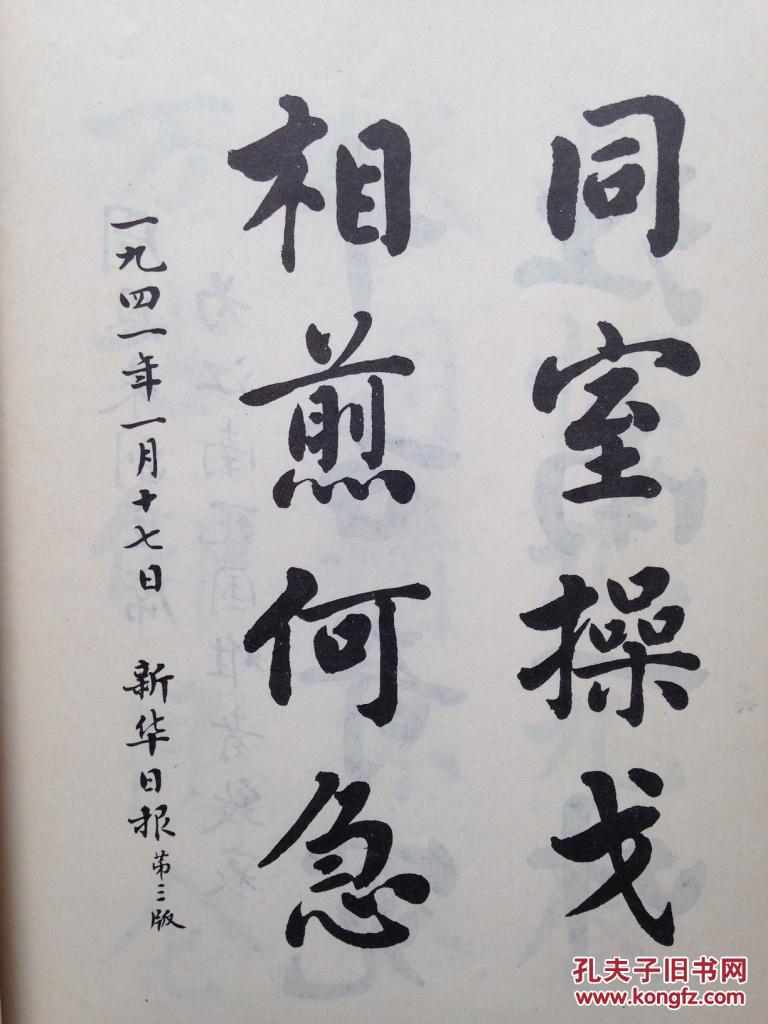 同室操戈
相煎何急
一九四一年一月十七日 新华日报 第三版
为江南死国难者致哀
孔夫子旧书网
www.kongfz.com